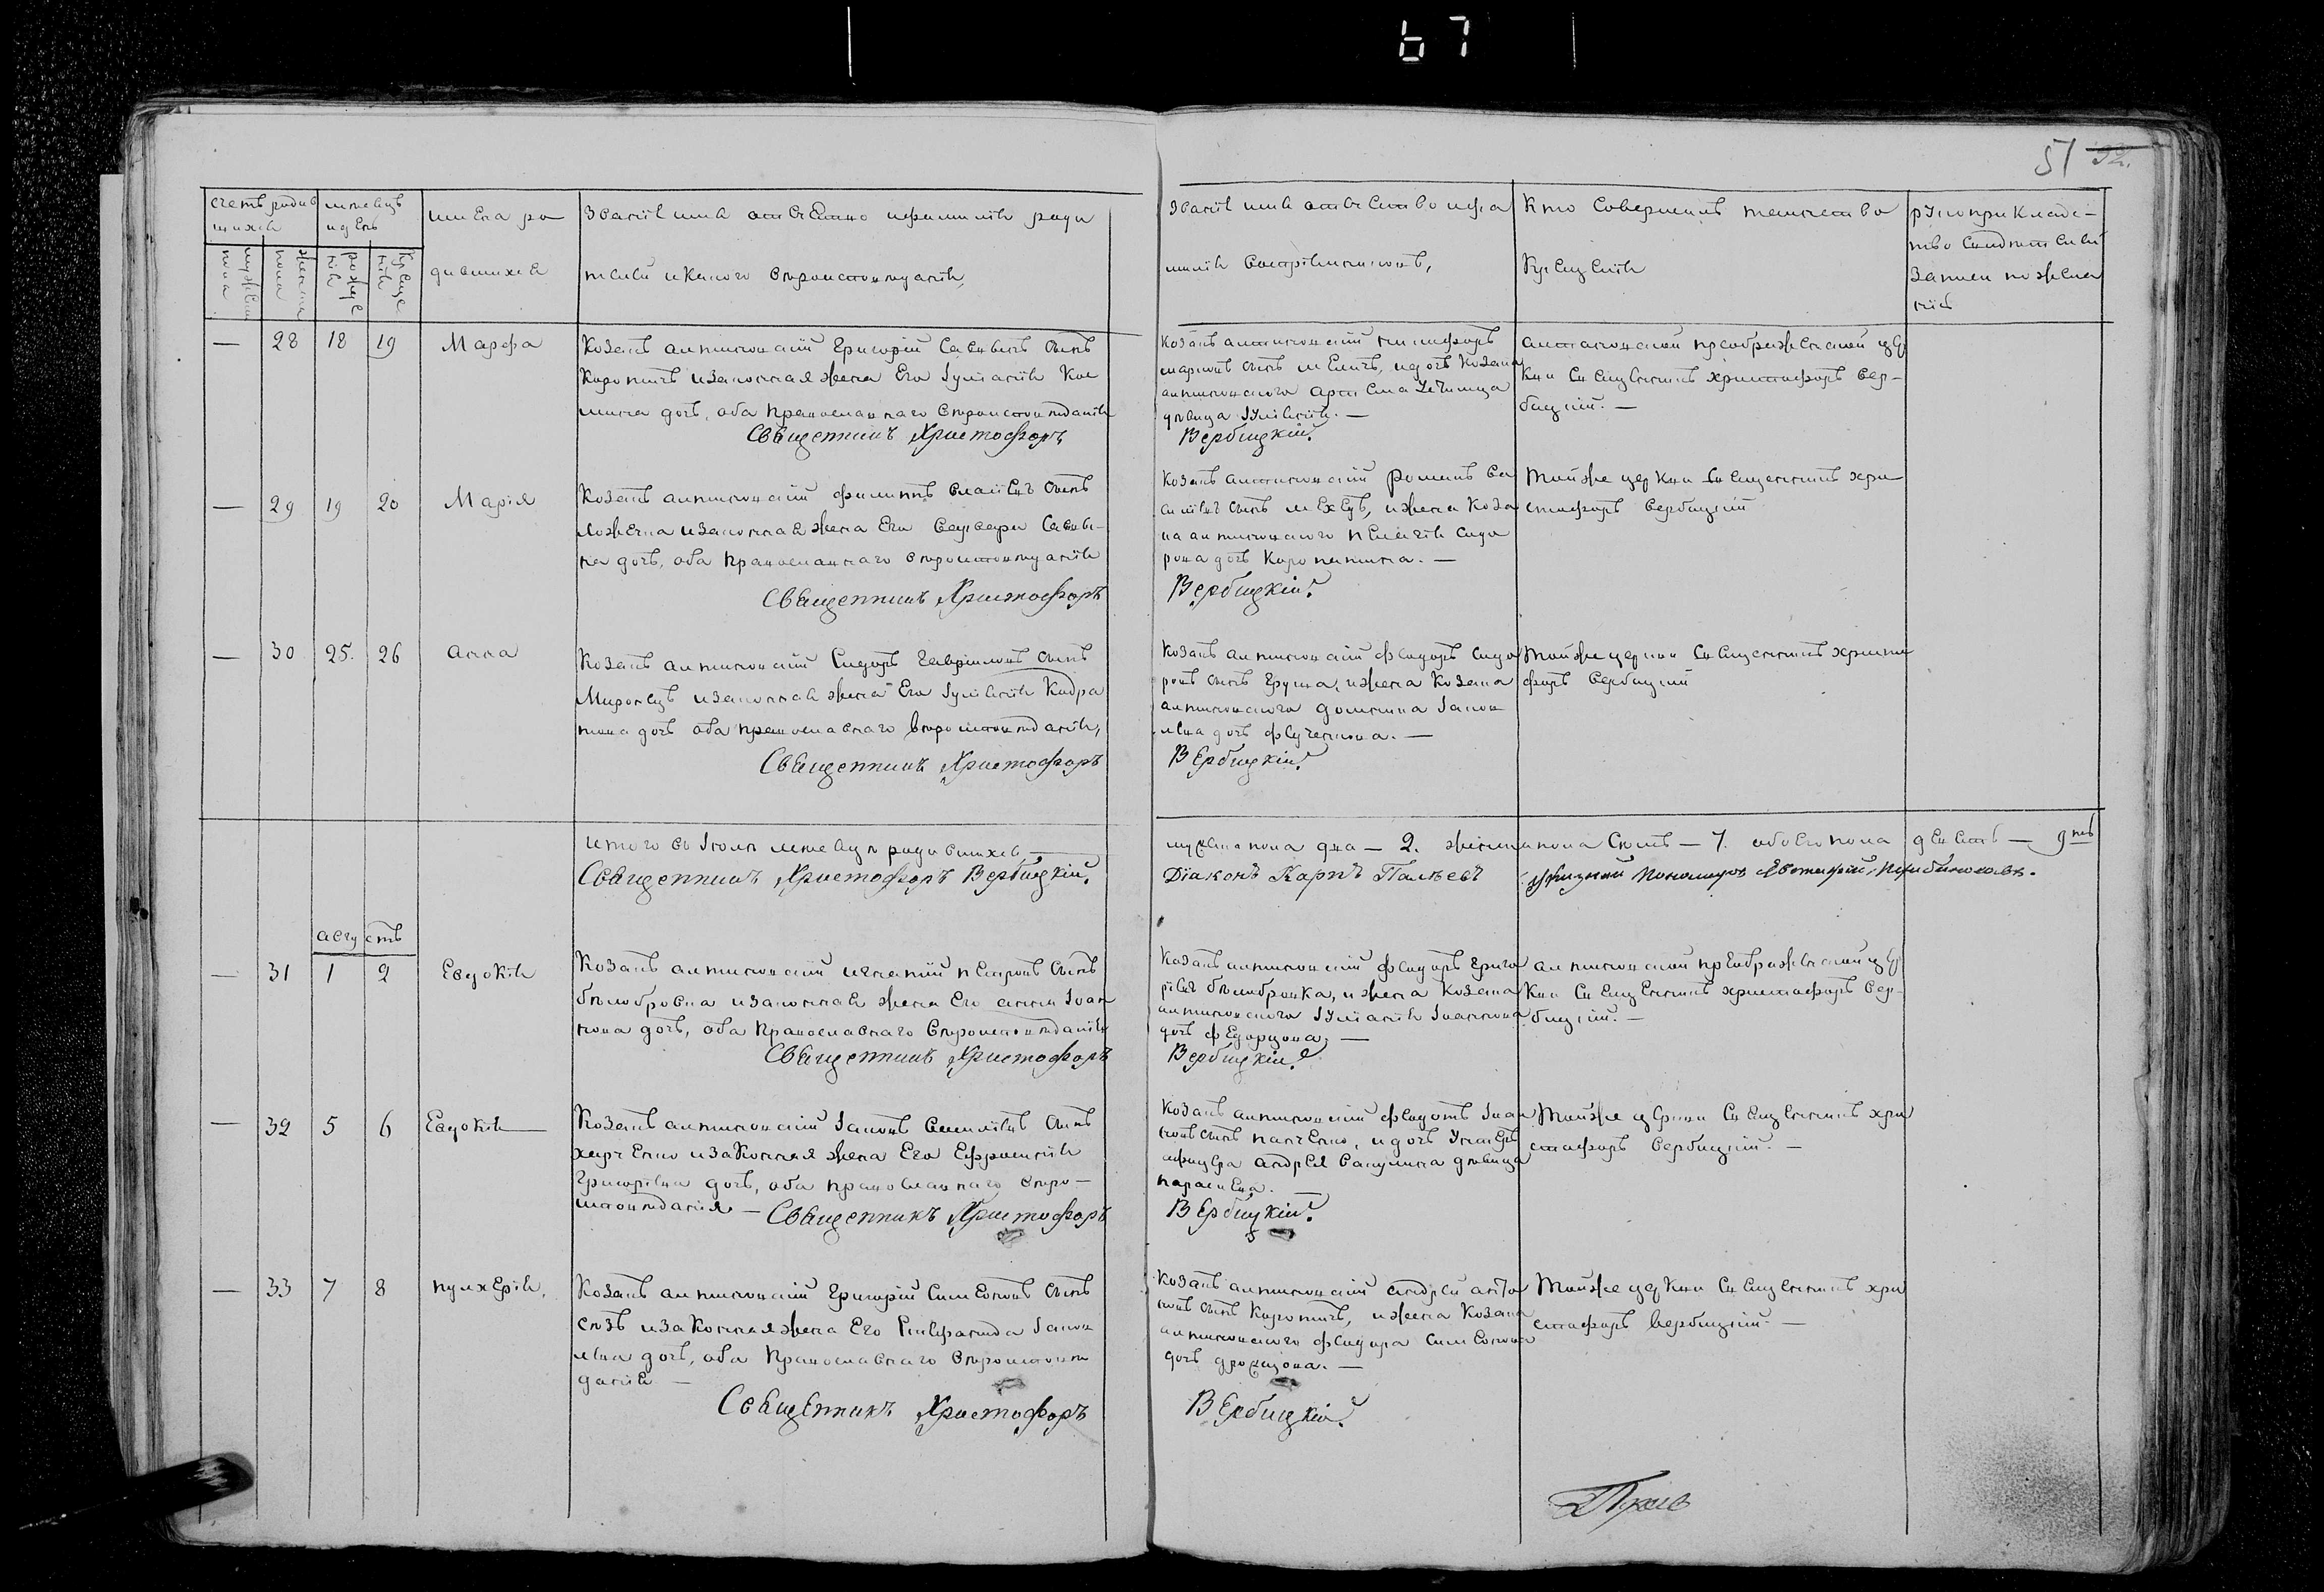 67
51 52.
счетъ родив
шихся
мѣсяцъ
и день
имена ро
дившихся
Званіе имя отчество и фамилія роди
телей и какого вѣроисповѣданія,
мужеска
пола
женска
пола
рожде
нія
креще
нія
Званіе имя отчество и фа
милія воспріемниковъ,
Кто совершилъ таинство
Крещенія
рукоприкладс-
тво свидѣтелей
записи по жела
нію
— 28 18 19 Марфа
Козакъ антиповскій Григорій Савинъ сынъ
Коропичъ и законная жена Его Іуліанія Кос
мина дочь, оба православнаго вѣроисповѣданія
Священникъ Христофоръ
Козакъ антиповскій никифоръ
марковъ сынъ
антиповскаго
дѣвица
Вербицкій.
антиповской преображенской цер
кви Священникъ христофоръ Вер-
бицкій. —
— 29 19 20 Марія
Козакъ антиповскій филиппъ власіевъ сынъ
Ложечка и законная жена Его варвара Савви-
на дочь, оба православнаго вѣроисповѣданія
Священникъ Христофоръ
Козакъ антиповскій романъ ва
силіевъ сынъ мехедъ, и жена Коза
ка антиповскаго пелагія сидо
рова дочь Коропатника. —
Вербицкій.
Тойже церкви Священникъ хри
стофоръ Вербицкій
— 30 25. 26 анна
Козакъ антиповскій Сидоръ Гавріиловъ сынъ
Миронецъ и законная жена Его Іуліанія Кодра
това дочь оба православнаго вѣроисповѣданія,
Священникъ Христофоръ
Козакъ антиповскій федоръ сидо
ровъ сынъ Груша, и жена Козака
антиповскаго домникія Іаков
лева дочь федченкова. —
Вербицкій.
Тойже церкви Священникъ христо
форъ Вербицкій
итого въ Іюлѣ мѣсяцѣ родившихся —
мужеска пола два — 2. женска пола семь — 7. обоего пола девять — 9ть
Священникъ Христофоръ Вербицкій.
Діаконъ Карпъ Палѣевъ
августъ
— 31 1 2 Евдокія
Козакъ антиповскій игнатій петровъ сынъ
бѣлобровка и законная жена Его анна Іоан
нова дочь, оба православнаго вѣроисповѣданія
Священникъ Христофоръ
Козакъ антиповскій федоръ григо
ріевъ бѣлобровка, и жена Козака
антиповскаго Іуліанія Іоаннова
дочь федорцова. —
Вербицкій.
антиповской преображенской цер
кви Священникъ христофоръ Вер-
бицкій. —
— 32 5 6 Евдокія
Козакъ антиповскій Іаковъ василіевъ сынъ
харченко и законная жена Его Ефросинія
Григоріева дочь, оба православнаго вѣро-
исповѣданія — Священникъ Христофоръ
Козакъ антиповскій федотъ Іоан
новъ сынъ панченко, и дочь
офицера андрея дѣвица
параскева. —
Вербицкій.
Тойже церкви Священникъ хри
стофоръ Вербицкій. —
— 33 7 8 пулхерія,
Козакъ антиповскій Григорій Симеоновъ сынъ
и законная жена Его Іаков
лева дочь, оба православнаго вѣроисповѣ
данія —
Священникъ Христофоръ
Козакъ антиповскій андрей анто
новъ сынъ Коропичъ, и жена Козака
антиповскаго феодора симеонова
дочь
Вербицкій.
Тойже церкви Священникъ хри
стофоръ Вербицкій. —